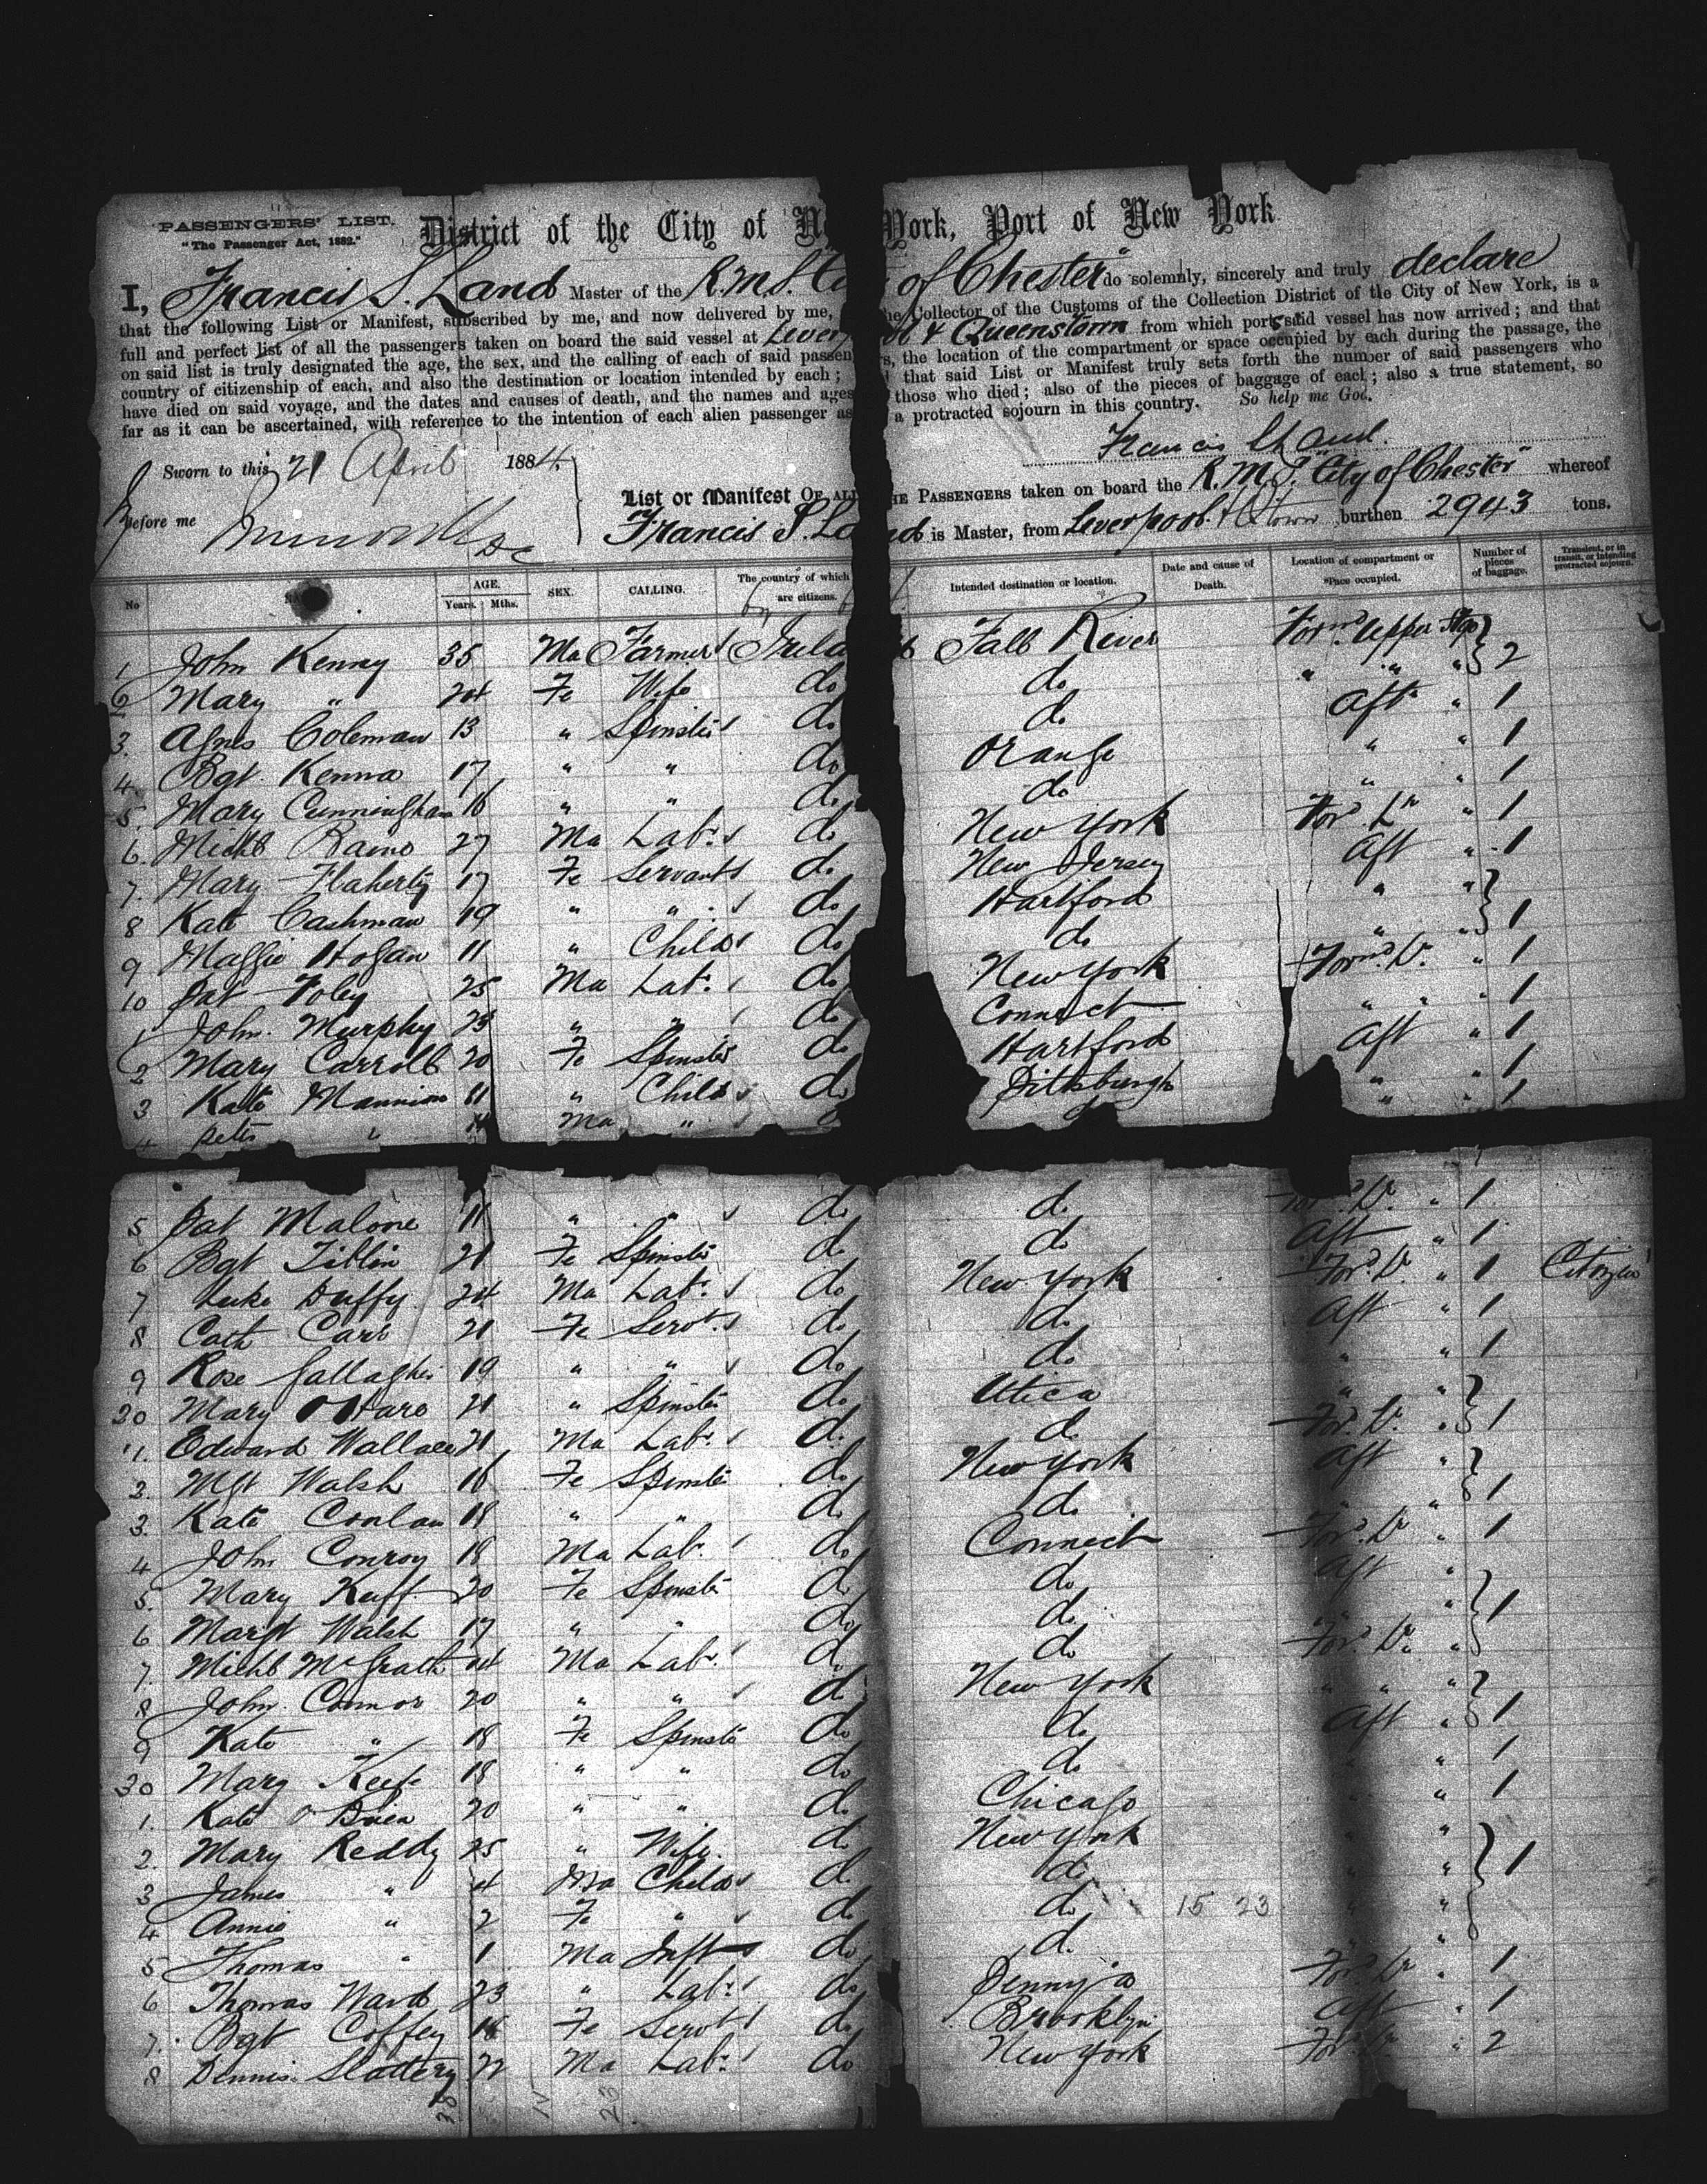 PASSENGERS' LIST.
"The Passenger Act, 1882."
District of the City of Ne York, Port of New York
I, Francis S. Land Master of the R.M.S. Ci y of Chester" do solemnly, sincerely and truly declare
that the following List or Manifest, subscribed by me, and now delivered by me, he Collector of the Customs of the Collection District of the City of New York, is a
full and perfect list of all the passengers taken on board the said vessel at Liverp ool & Queenstown from which ports said vessel has now arrived; and that
on said list is truly designated the age, the sex, and the calling of each of said passen rs, the location of the compartment or space occupied by each during the passage, the
country of citizenship of each, and also the destination or location intended by each; that said List or Manifest truly sets forth the number of said passengers who
have died on said voyage, and the dates and causes of death, and the names and ages those who died; also of the pieces of baggage of each; also a true statement, so
far as it can be ascertained, with reference to the intention of each alien passenger as a protracted sojourn in this country. So help me God.
Francis S Land.
Sworn to this 21 April 1884,
before me
List or Manifest OF ALL HE PASSENGERS taken on board the R.M.S. "City of Chester" whereof
Francis S. La nd is Master, from Liverpool & Qtown burthen 2943 tons.
No AGE. Years. Mths. SEX. CALLING. The country of which are citizens. Intended destination or location. Date and cause of Death. Location of compartment or space occupied. Number of pieces of baggage. Transient, or in transit, or intending protracted sojourn.
1 John Kenny 35 Ma Farmer Irela d Fall River Forwd Upper Stge } 2
2 Mary " 24 Fe Wife do do " " "
3. Agnes Coleman 13 " Spinster do do Aft " 1
4. Bgt. Kenna 17 " " do Orange " " 1
5. Mary Cunningham 16 " " do do " " 1
6. Michl 27 Ma Labr. do New York For. Lr " 1
7. Mary Flaherty 17 Fe Servant do New Jersey Aft " 1
8 Kate Cashman 19 " " do Hartford " " }
9 Maggie Hogan 11 " Child do do " " 1
10 Pat Foley 25 Ma Labr. do New York Forwd. Lr. " 1
1 John Murphy 23 " " do Connect " " " 1
2 Mary Carroll 20 Fe Spinster do Hartford Aft " 1
3 Kate Mannion 11 " Child do Pittsburgh " " 1
4 Peter " Ma " " " 1
5 Pat Malone 11 " " do do Ford. Lr. " 1
6 Bgt 21 Fe Spinster do do Aft " 1
7 Luke Duffy 24 Ma Labr. do New York Ford. Lr. " 1 Citizen
8 Cath Carr 21 Fe Servt. do do Aft " 1
9 Rose Gallagher 19 " " do do " " 1
20 Mary O'Hare 21 " Spinster do Utica " " }
1. Edward Wallace 21 Ma Labr. do do For. Lr. " 1
2. Mgt Walsh 16 Fe Spinster do New York Aft }
3. Kate Conlan 18 " " do do " " 1
4 John Conroy 18 Ma Labr. do Connect Ford. Lr " 1
5. Mary Keeff 20 Fe Spinster do do Aft "
6 Margt Walsh 17 " " do do " " } 1
7. Michl McGrath 24 Ma Labr. do do Ford. Lr. "
8 John Connor 20 " " do New York " " " }
9 Kate " 18 Fe Spinster do do Aft " 1
30 Mary Keefe 18 " " do do " " 1
1. Kate O'Brien 20 " " do Chicago " " 1
2. Mary Reddy 25 " Wife do New York " " }
3 James " 4 Ma Child do do " " 1
4 Annie " 2 Fe " do do 15 23 " "
5 Thomas " 1 Ma Inft do do " "
6 Thomas Ward 23 " Labr. do Pennya Ford. Lr " 1
7. Bgt Coffey 18 Fe Servt do Brooklyn Aft " 1
8 Dennis Slattery 22 Ma Labr. do New York For. Lr. " 2
38 23